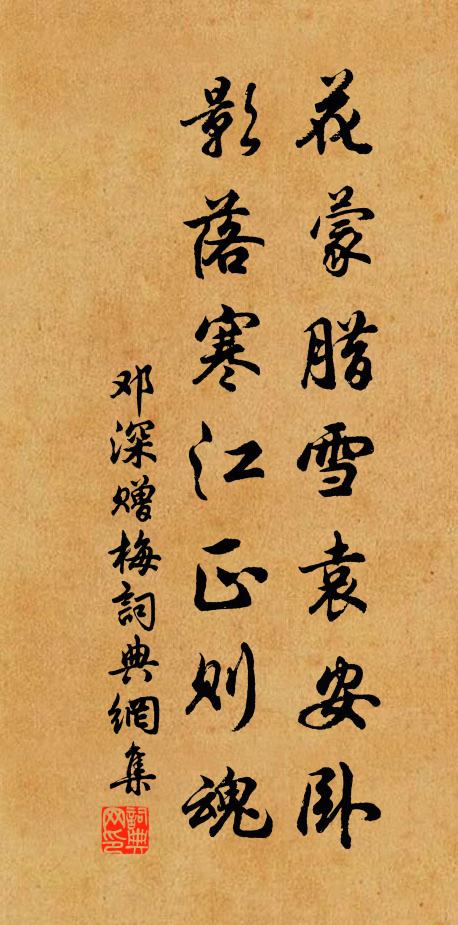 花蒙腊雪袁安卧
影落寒江正则魂
邓深赠梅詞典網集
詞典网印